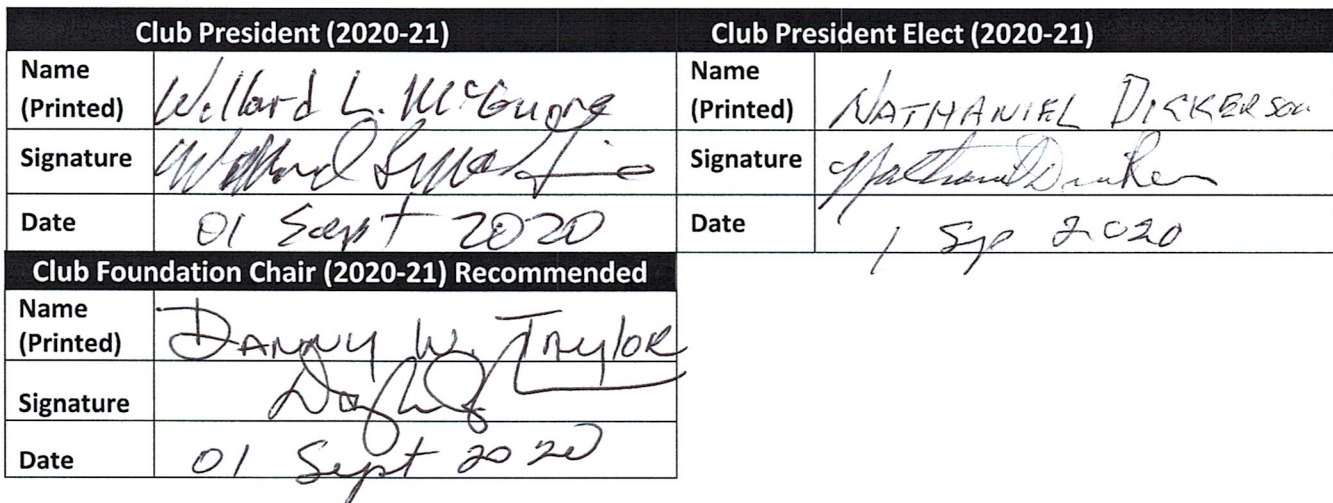 Club President (2020-21)
Name
(Printed) Willard L. McGuire
Signature
Date 01 Sept 2020
Club President Elect (2020-21)
Name
(Printed) NATHANIEL DICKERSON
Signature
Date 1 Sep 2020
Club Foundation Chair (2020-21) Recommended
Name
(Printed) DANNY W. TAYLOR
Signature
Date 01 Sept 2020